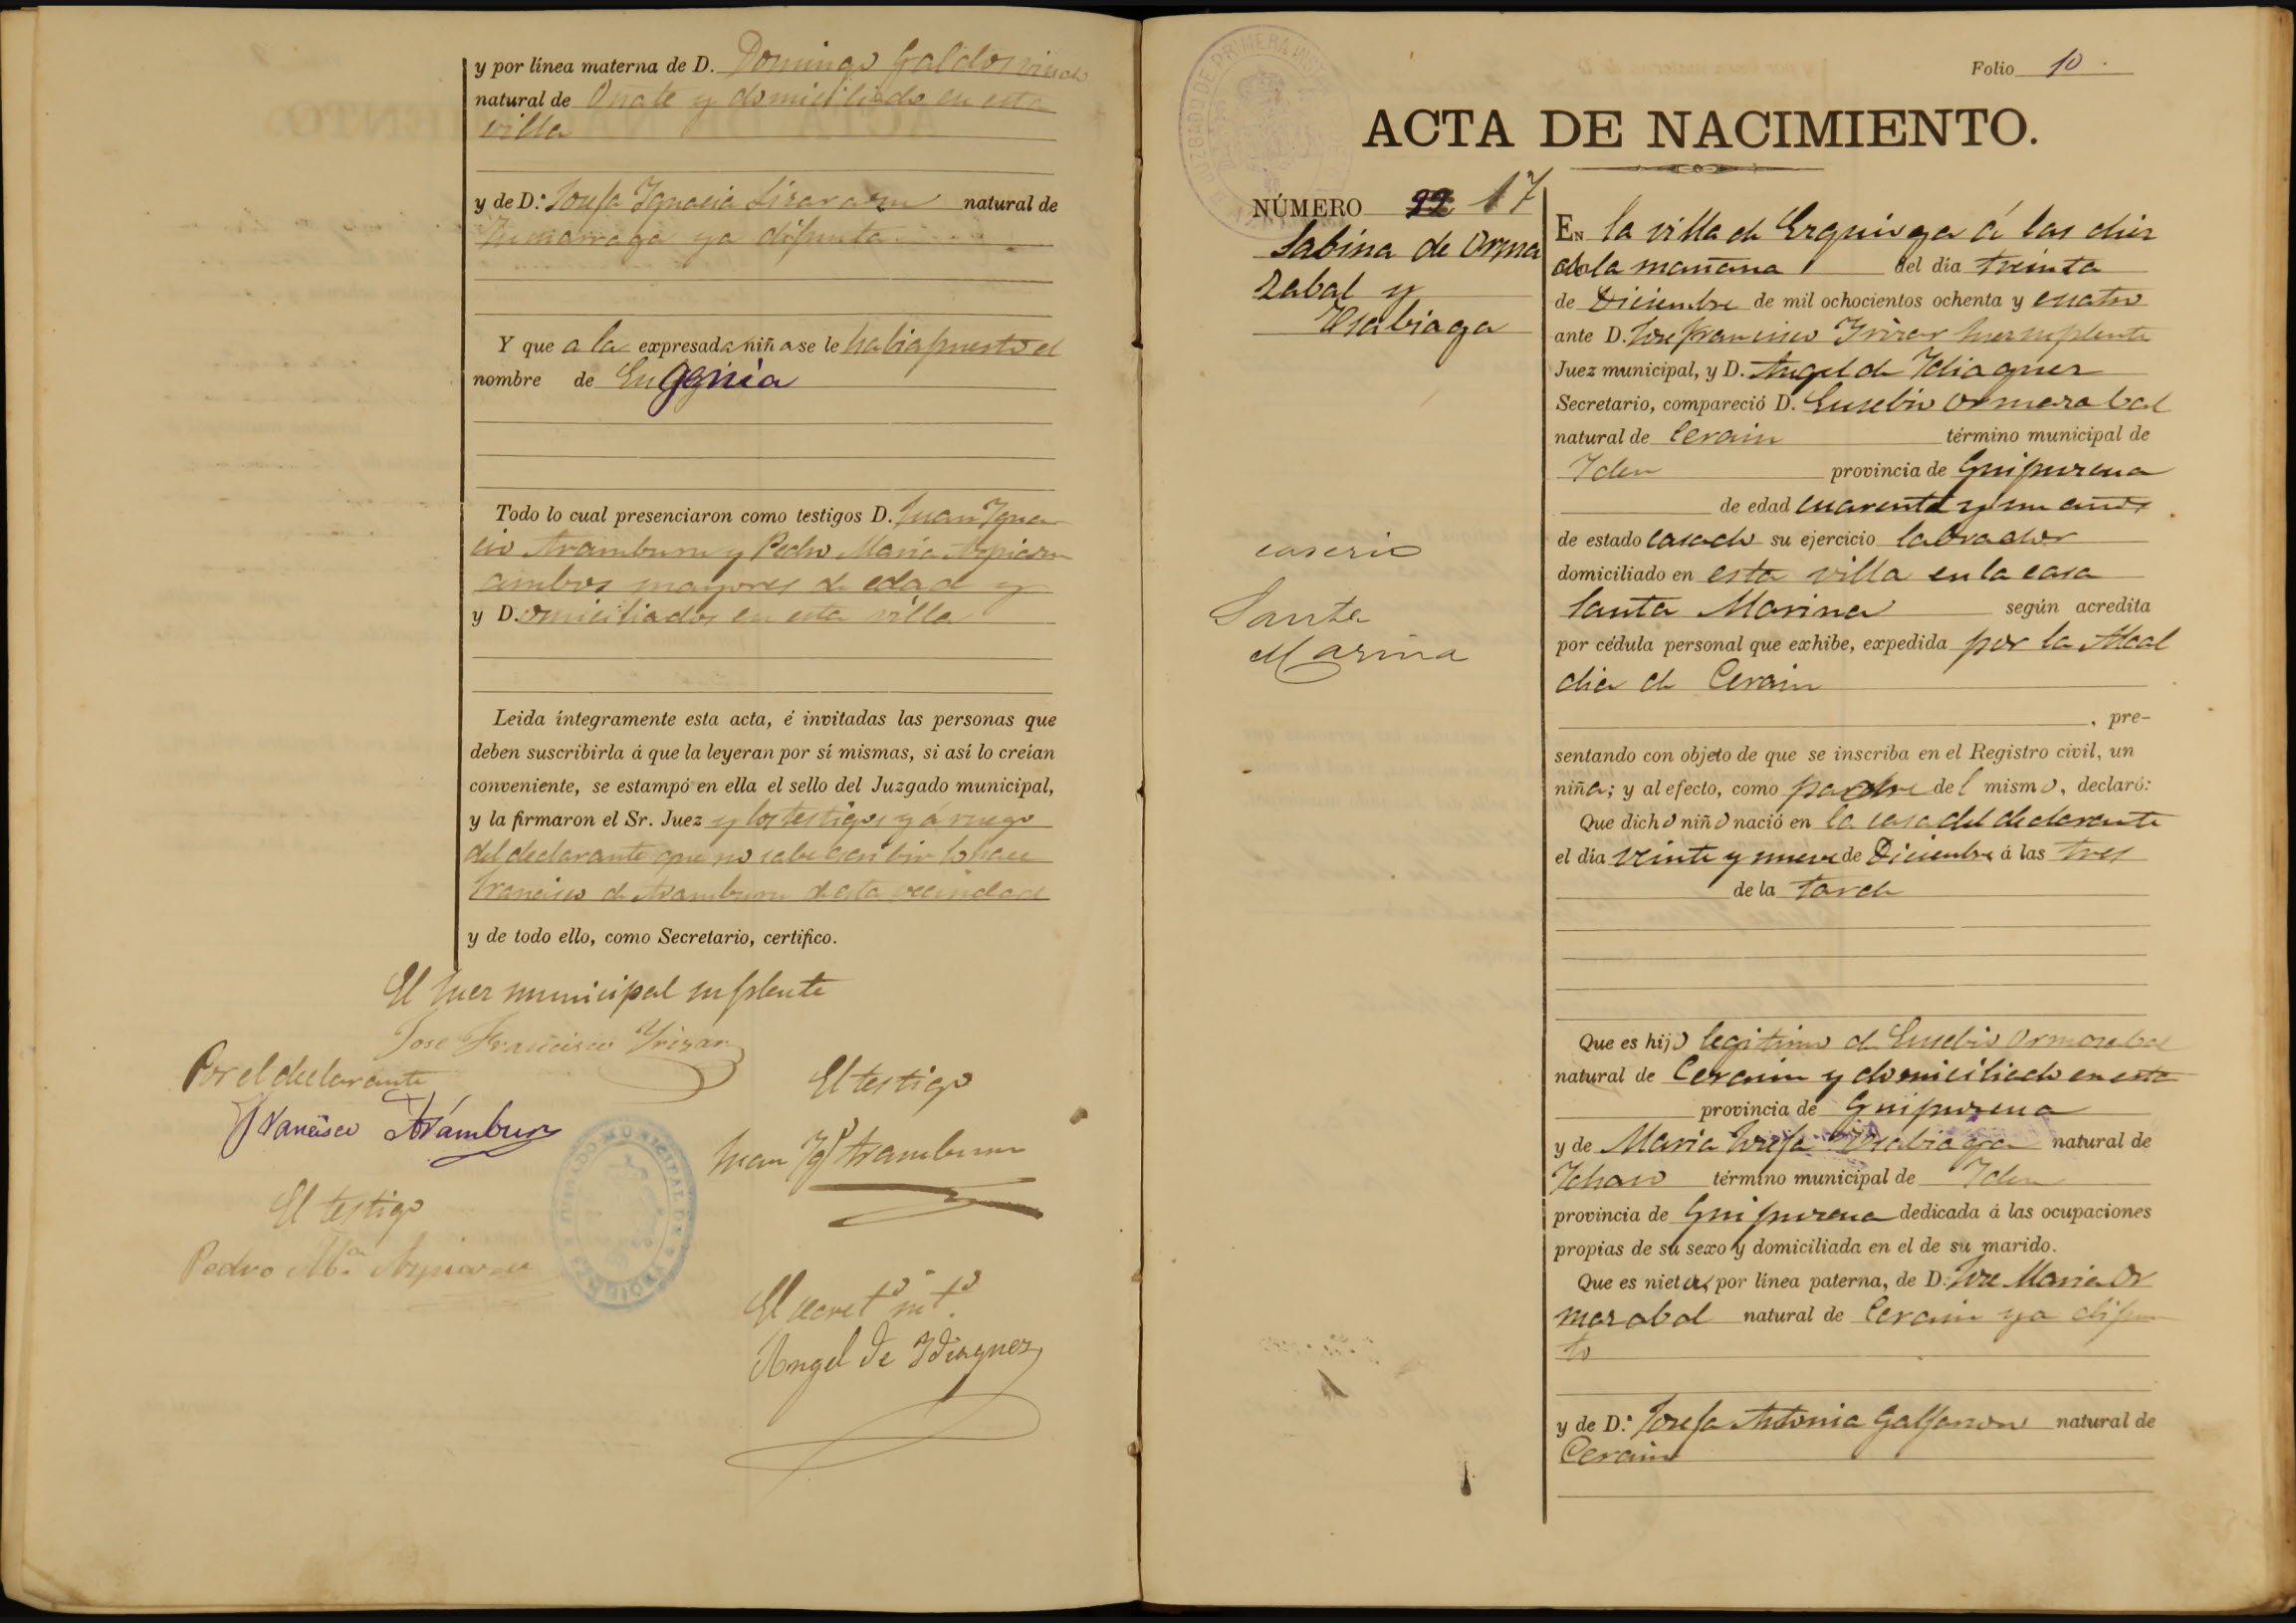 y por línea materna de D. Domingo Galdos viudo
natural de Oñate y domiciliado en esta
villa
y de D.ª Josefa Ignacia Lizarazu natural de
Zumarraga ya difunta
Y que a la expresada niña se le habia puesto el
nombre de Eugenia
Todo lo cual presenciaron como testigos D. Juan Igna
cio Aramburu y Pedro Maria Azpiazu
ambos mayores de edad y
y D. omiciliados en esta villa
Leida íntegramente esta acta, é invitadas las personas que
deben suscribirla á que la leyeran por sí mismas, si así lo creían
conveniente, se estampó en ella el sello del Juzgado municipal,
y la firmaron el Sr. Juez y los testigos y á ruego
del declarante que no sabe escribir lo hace
Francisco de Aramburu de esta vecindad
y de todo ello, como Secretario, certifico.
El Juez municipal suplente
Jose Francisco Yrizar
Por el declarante
Francisco Arámburu
El testigo
Juan Ygº Aramburu
El testigo
Pedro Mª Azpiazu
El secretº intº
Angel de Ydiaquez
Folio 10.
ACTA DE NACIMIENTO.
NÚMERO 17
Sabina de Orma
zabal y
Usabiaga
caserio
Santa
Marina
EN la villa de Ezquioga á las diez
de la mañana del día treinta
de Diciembre de mil ochocientos ochenta y cuatro
ante D. Jose Francisco Yrizar Juez suplente
Juez municipal, y D. Angel de Ydiaquez
Secretario, compareció D. Eusebio Ormazabal
natural de Cerain término municipal de
Idem provincia de Guipuzcoa
de edad cuarenta y un años
de estado casado su ejercicio labrador
domiciliado en esta villa en la casa
Santa Marina según acredita
por cédula personal que exhibe, expedida por la Alcal
dia de Cerain
, pre-
sentando con objeto de que se inscriba en el Registro civil, un
niña; y al efecto, como padre del mismo, declaró:
Que dicho niño nació en la casa del declarante
el día veinte y nueve de Diciembre á las tres
de la tarde
Que es hijo legitimo de Eusebio Ormazabal
natural de Cerain y domiciliado en esta
provincia de Guipuzcoa
y de Maria Josefa Usabiaga natural de
Ichaso término municipal de Idem
provincia de Guipuzcoa dedicada á las ocupaciones
propias de su sexo y domiciliada en el de su marido.
Que es nieta, por línea paterna, de D. Jose Maria Or
mazabal natural de Cerain ya difun
to
y de D.ª Josefa Antonia Galfarsoro natural de
Cerain